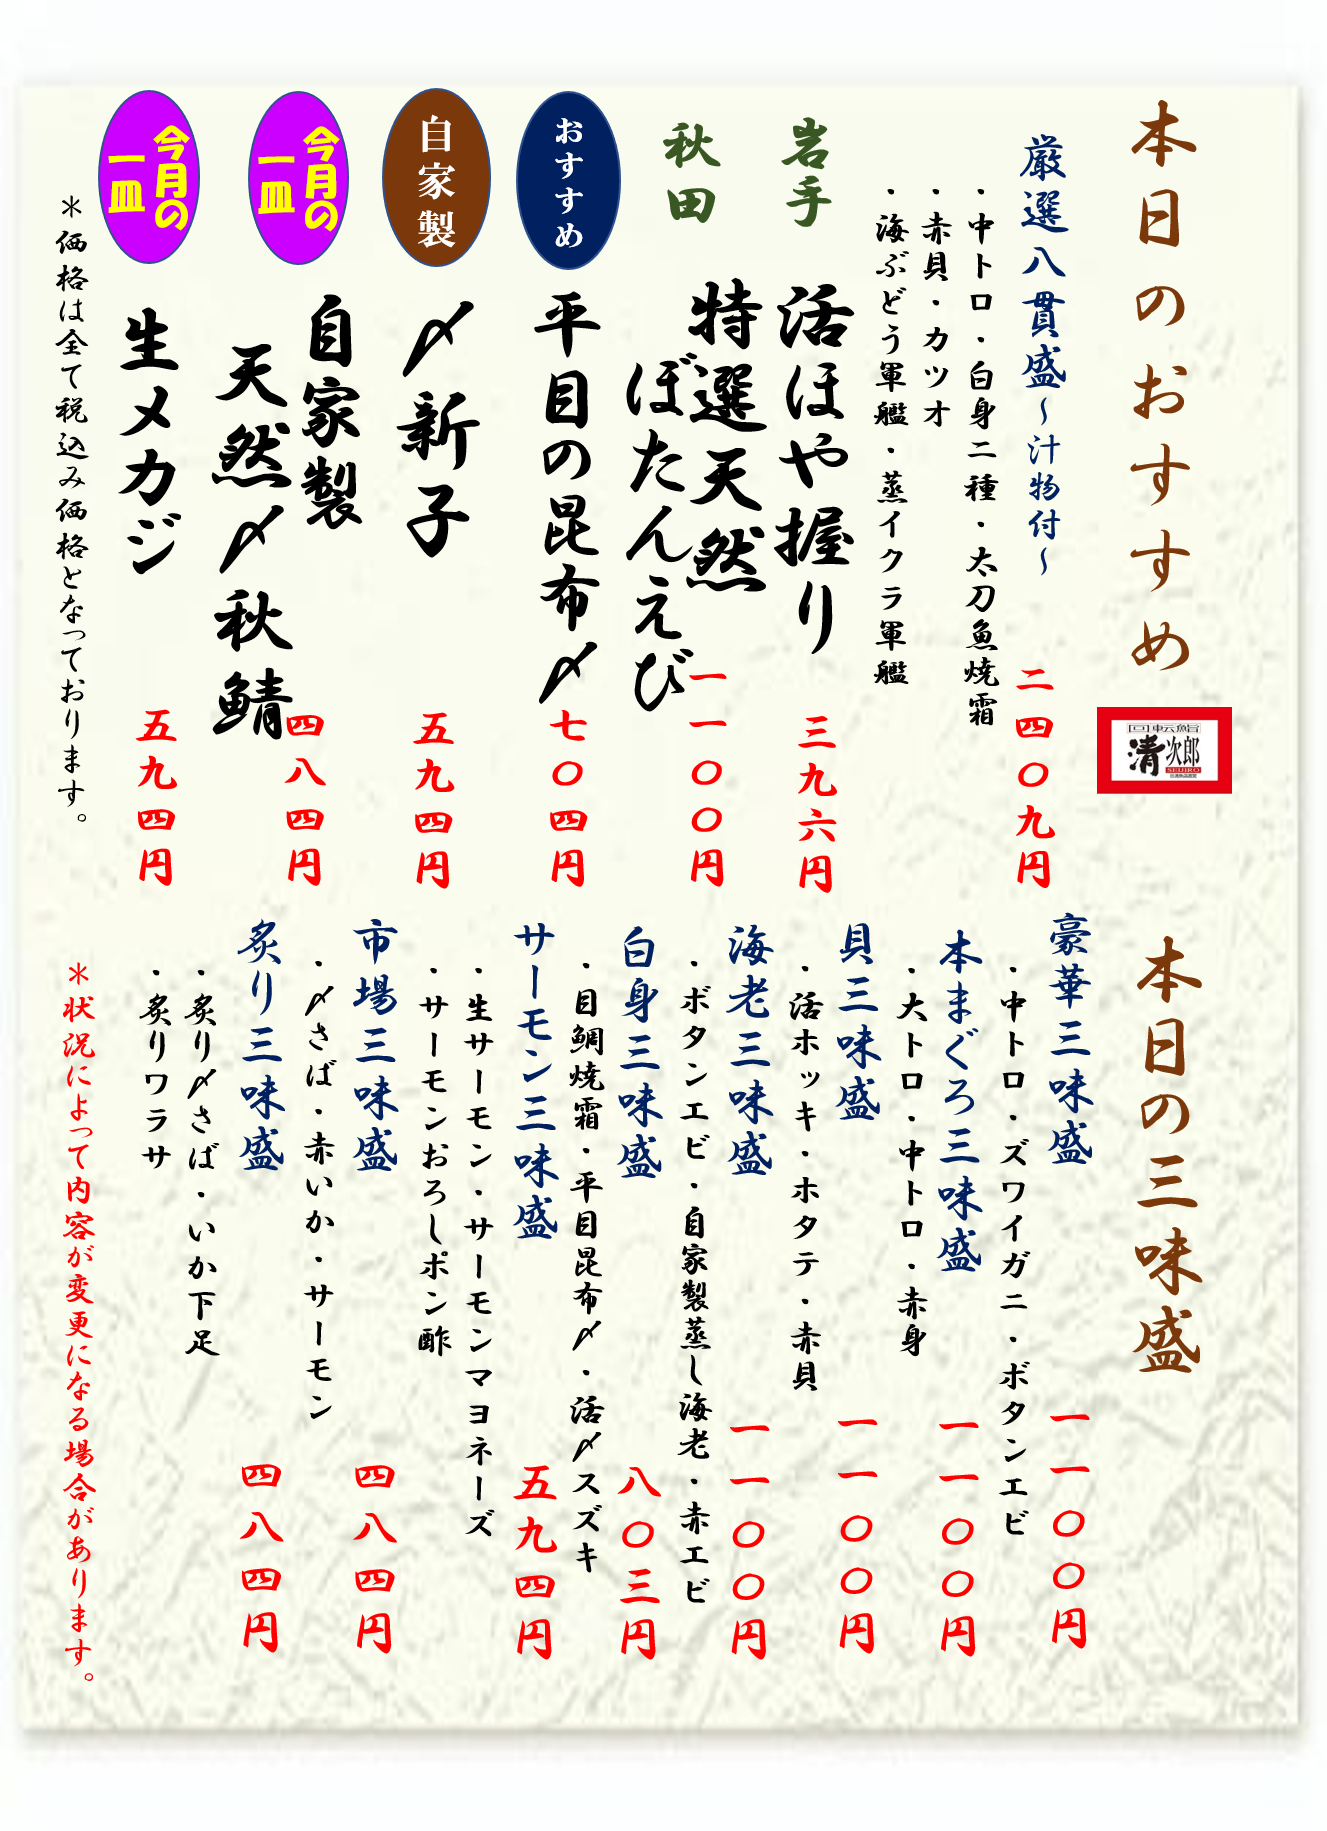 本日のおすすめ
回転鮨
清次郎
SEIJIRO
厳選八貫盛～汁物付～
二四〇九円
・中トロ・白身二種・太刀魚焼霜
・赤貝・カツオ
・海ぶどう軍艦・蒸イクラ軍艦
岩手
活ほや握り
三九六円
秋田
特選天然
ぼたんえび
一一〇〇円
おすすめ
平目の昆布〆
七〇四円
自家製
〆新子
五九四円
今月の
一皿
自家製
天然〆秋鯖
四八四円
今月の
一皿
生メカジ
五九四円
＊価格は全て税込み価格となっております。
本日の三味盛
豪華三味盛
一一〇〇円
・中トロ・ズワイガニ・ボタンエビ
本まぐろ三味盛
一一〇〇円
・大トロ・中トロ・赤身
貝三味盛
一一〇〇円
・活ホッキ・ホタテ・赤貝
海老三味盛
一一〇〇円
・ボタンエビ・自家製蒸し海老・赤エビ
白身三味盛
八〇三円
・目鯛焼霜・平目昆布〆・活〆スズキ
サーモン三味盛
五九四円
・生サーモン・サーモンマヨネーズ
・サーモンおろしポン酢
市場三味盛
四八四円
・〆さば・赤いか・サーモン
炙り三味盛
四八四円
・炙り〆さば・いか下足
・炙りワラサ
＊状況によって内容が変更になる場合があります。